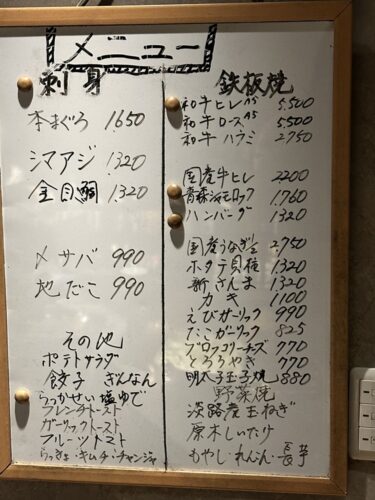 メニュー
刺身
本まぐろ 1650
シマアジ 1320
金目鯛 1320
〆サバ 990
地だこ 990
その他
ポテトサラダ
餃子 ぎんなん
らっかせい塩ゆで
フレンチトースト
ガーリックトースト
フルーツトマト
らっきょ・キムチ・チャンジャ
鉄板焼
和牛ヒレA5 5,500
和牛ロースA5 5,500
和牛ハラミ 2750
国産牛ヒレ 2200
青森シャモロック 1,760
ハンバーグ 1320
国産うなぎ1/2 2,750
ホタテ貝柱 1320
新さんま 1320
カキ 1100
えびガーリック 990
たこガーリック 825
ブロッコリーチーズ 770
とろろやき 770
明太子玉子焼 880
野菜焼
淡路産玉ねぎ
原木しいたけ
もやし・れんこん・長芋